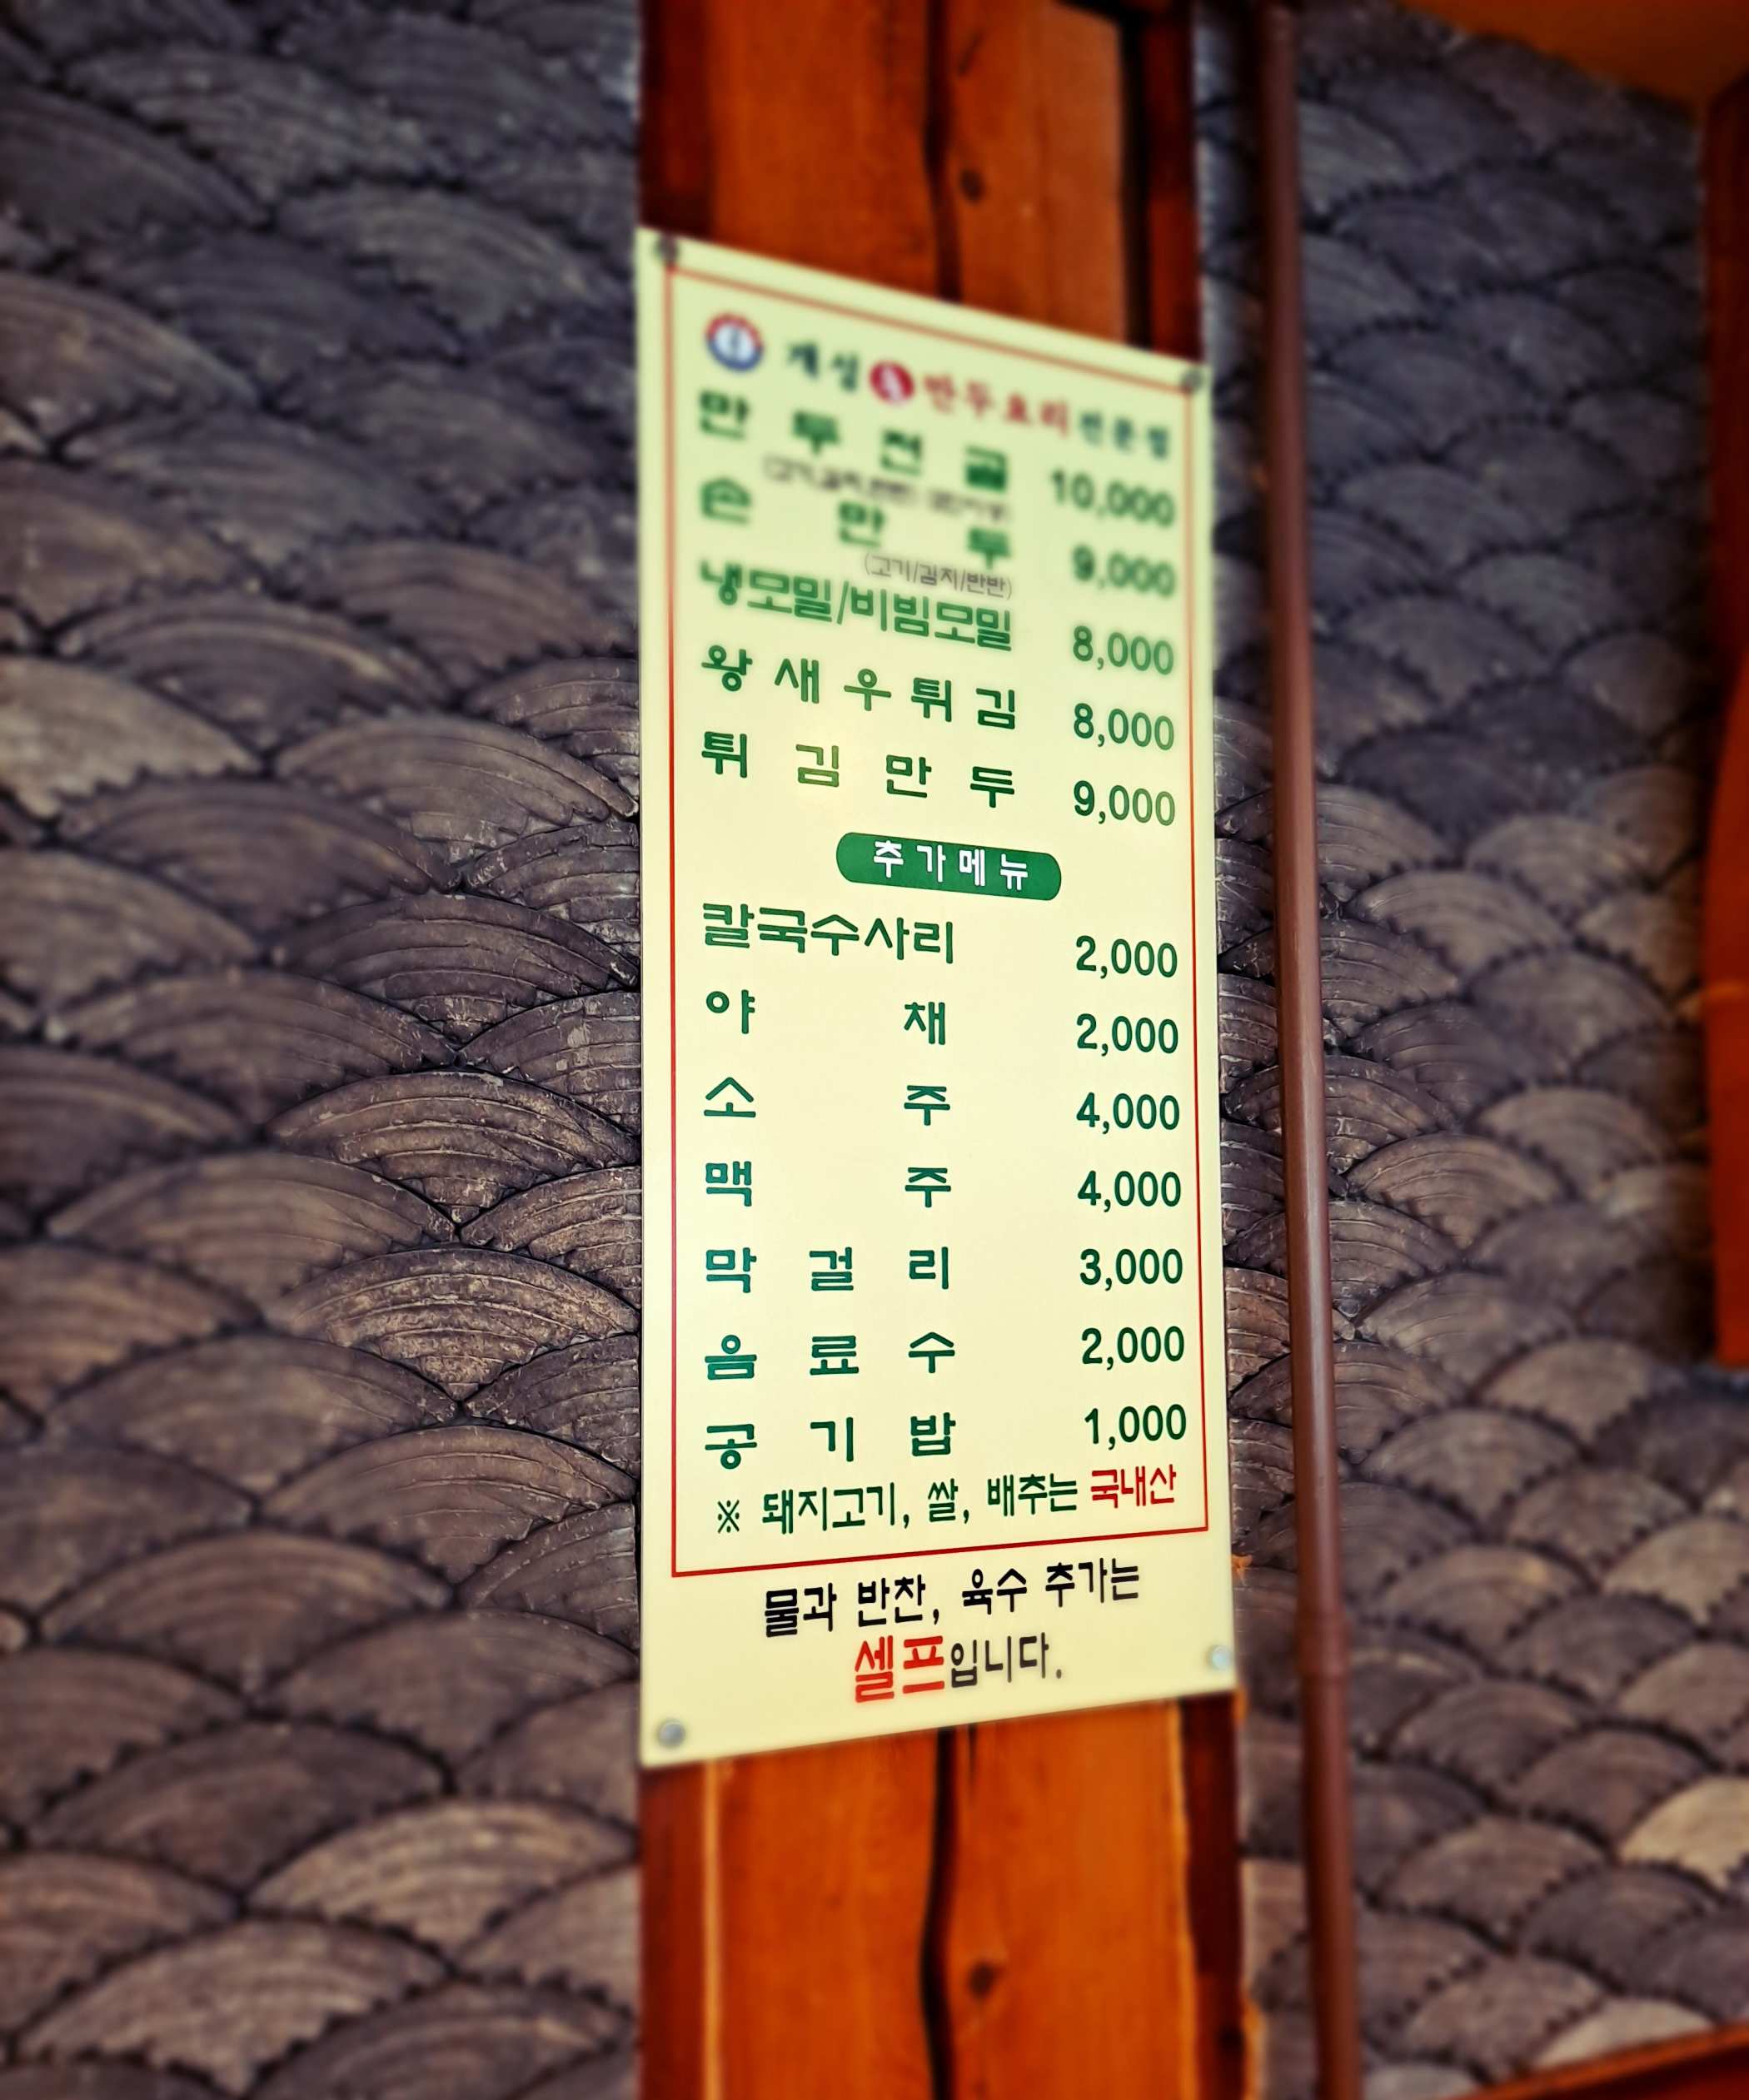 개성 손 만두요리전문점
만두전골 10,000
손만두 9,000
(고기/김치/반반)
냉모밀/비빔모밀 8,000
왕새우튀김 8,000
튀김만두 9,000
추가메뉴
칼국수사리 2,000
야채 2,000
소주 4,000
맥주 4,000
막걸리 3,000
음료수 2,000
공기밥 1,000
※ 돼지고기, 쌀, 배추는 국내산
물과 반찬, 육수 추가는
셀프입니다.